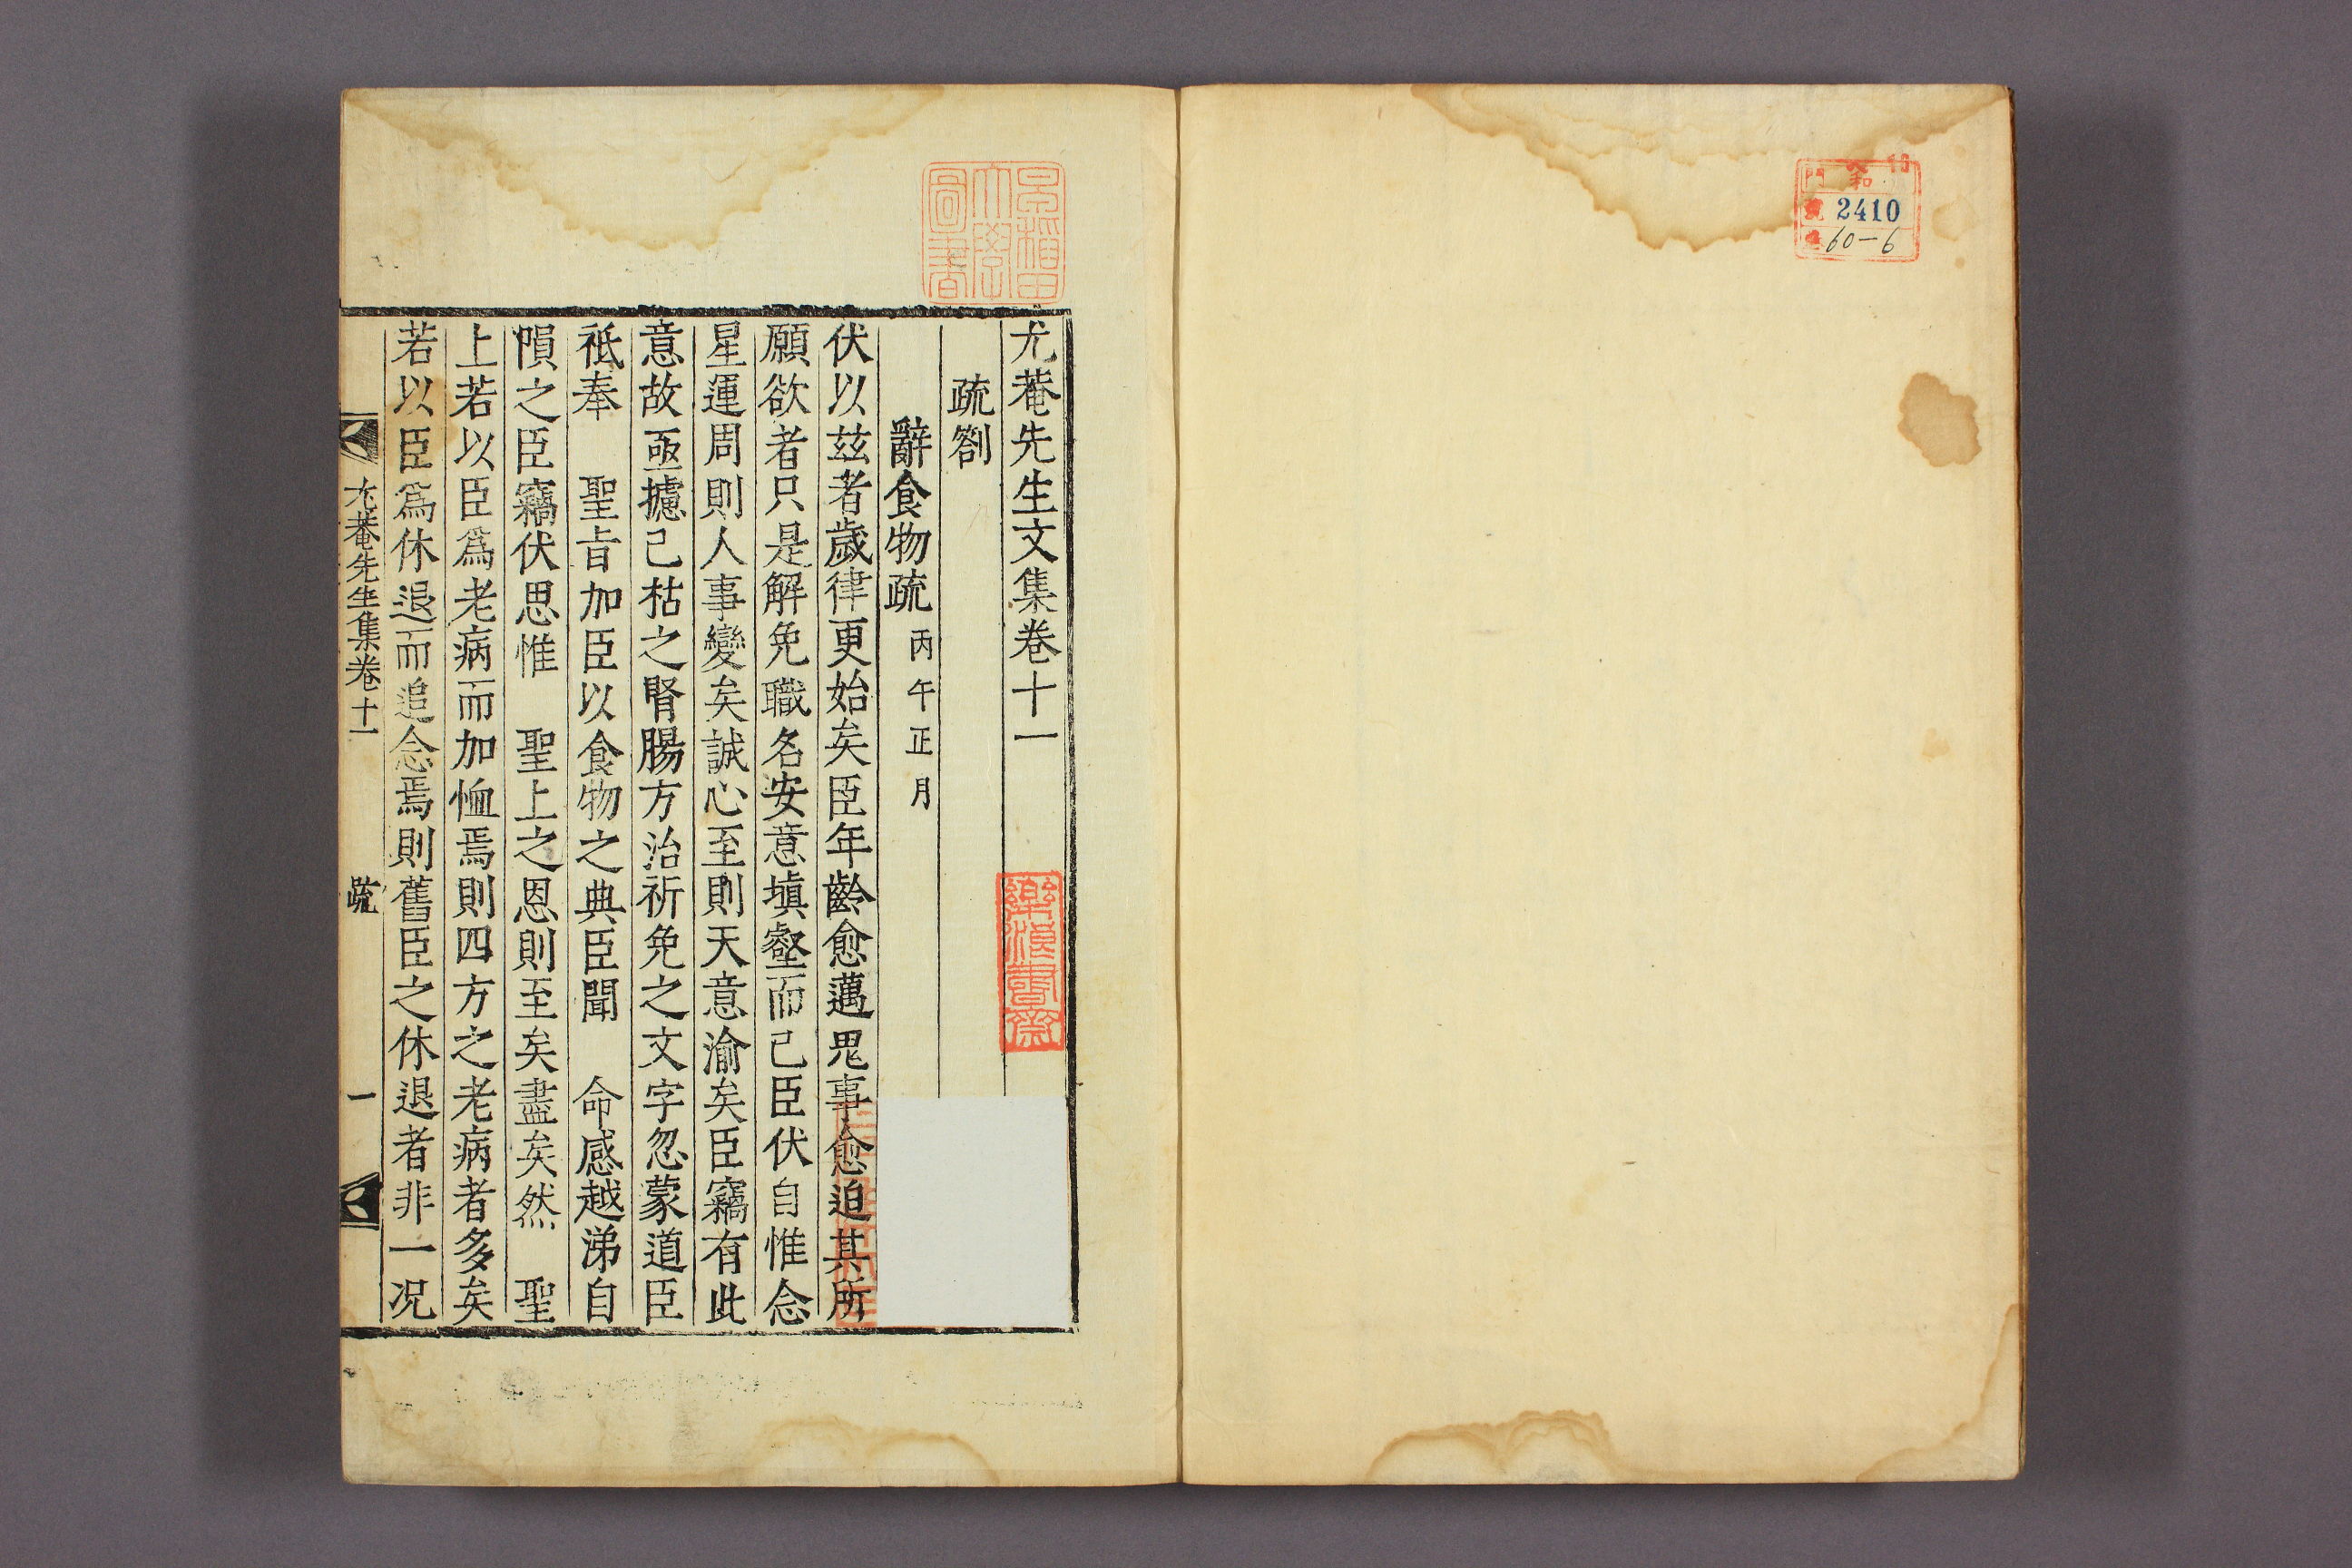 門 和
號 2410
60-6
早稲田
大學
圖書
尤菴先生文集卷十一
疏劄
辭食物疏 丙午正月
伏以玆者歲律更始矣臣年齡愈邁思事愈迫其所
願欲者只是解免職名安意塡壑而已臣伏自惟念
星運周則人事變矣誠心至則天意渝矣臣竊有此
意故亟攄已枯之腎腸方治祈免之文字忽蒙道臣
祗奉 聖旨加臣以食物之典臣聞 命感越涕自
隕之臣竊伏思惟 聖上之恩則至矣盡矣然 聖
上若以臣爲老病而加恤焉則四方之老病者多矣
若以臣爲休退而追念焉則舊臣之休退者非一况
尤菴先生集卷十一 疏 一